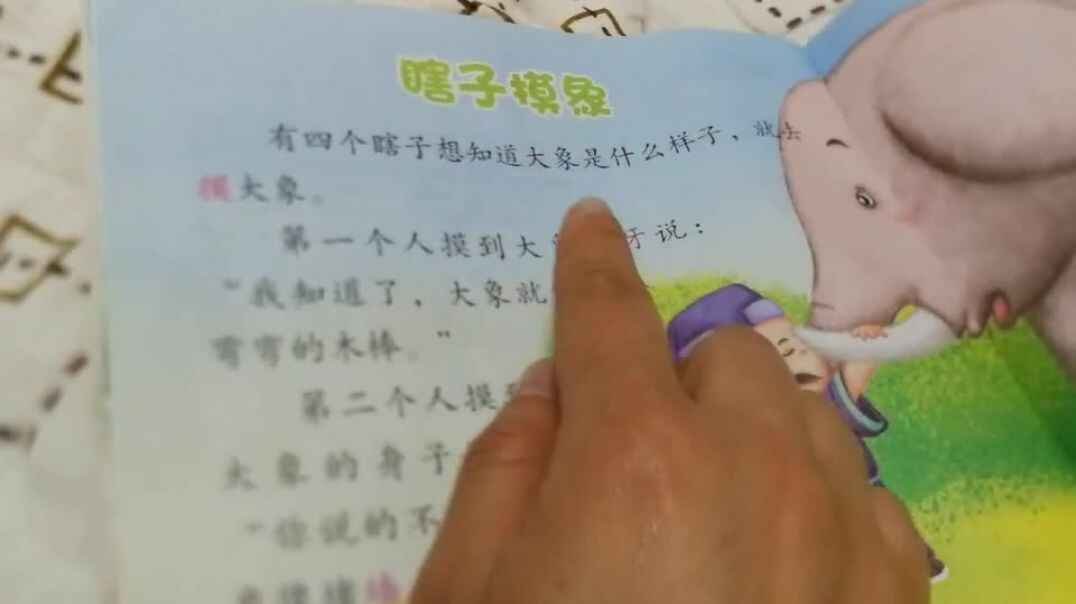 瞎子摸象
有四个瞎子想知道大象是什么样子，就去
摸大象。
第一个人摸到大 牙说：
“我知道了，大象就
弯弯的木棒。”
第二个人摸
大象的身子
“你说的不